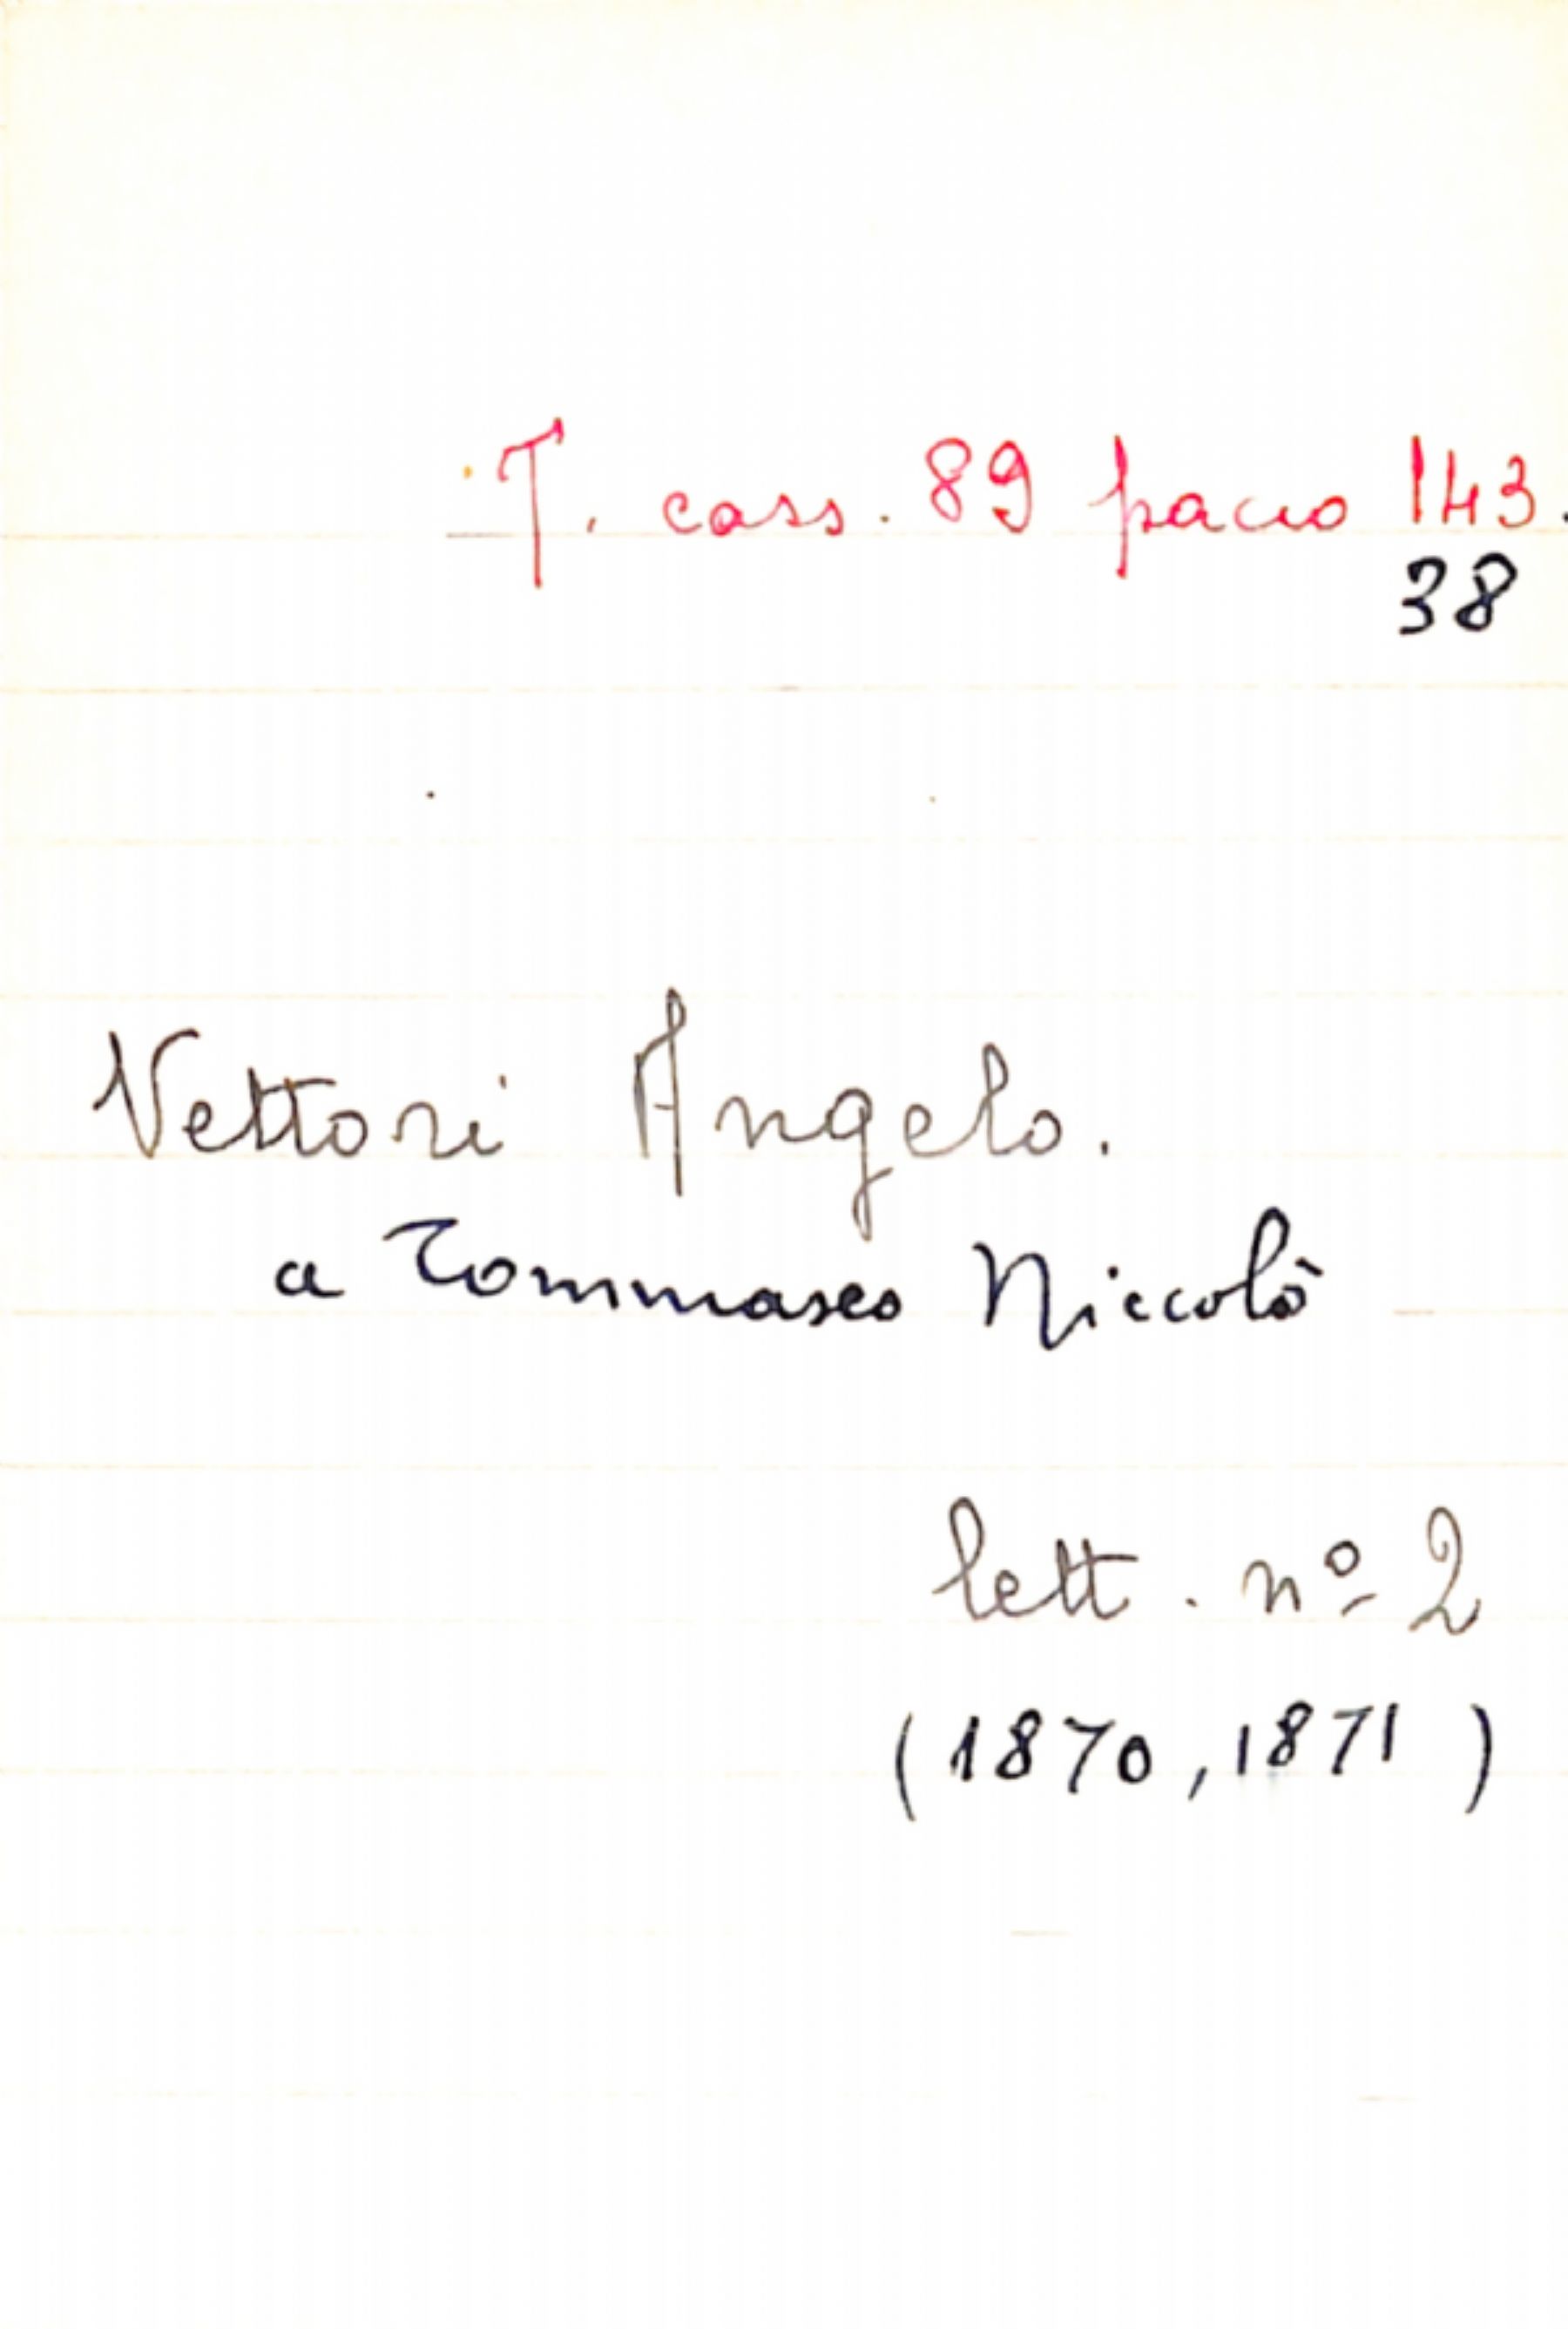 T. cass. 89 pacco 143.
38
Vettori Angelo.
a Tommaseo Niccolò
lett. nº 2
(1870, 1871)